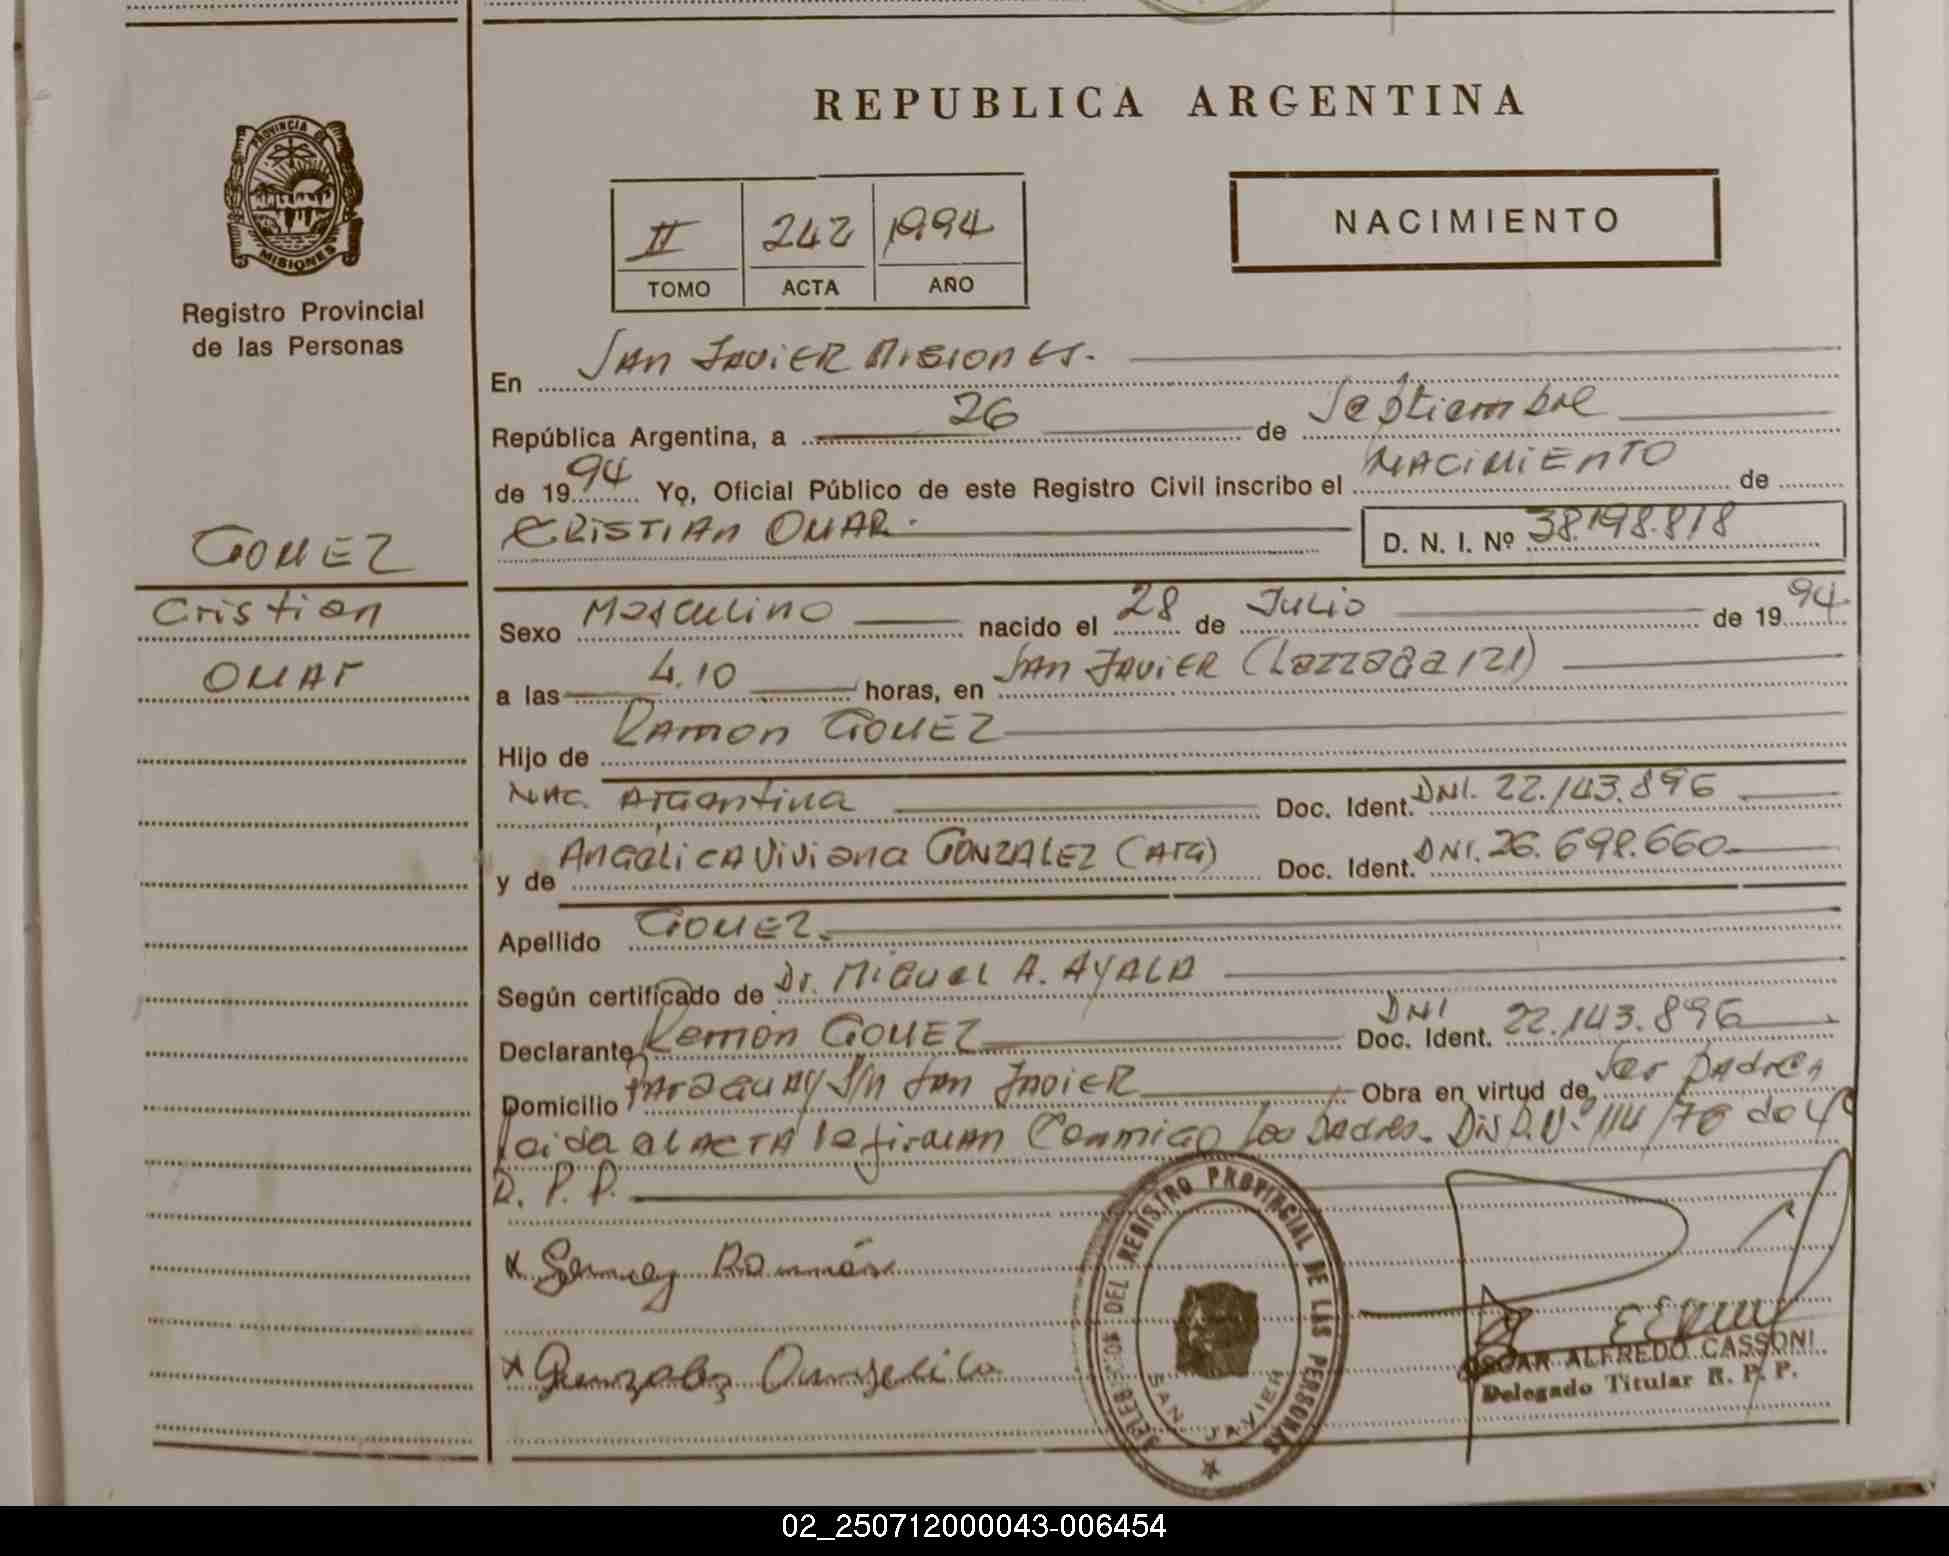 REPUBLICA ARGENTINA
PROVINCIA DE
MISIONES
Registro Provincial
de las Personas
II 242 1994
TOMO ACTA AÑO
NACIMIENTO
En San Javier Misiones.
República Argentina, a 26 de Septiembre
de 1994 Yo, Oficial Público de este Registro Civil inscribo el NACIMIENTO de
CRISTIAN OMAR.
D. N. I. Nº 38.198.818
GOMEZ
Cristian
OMAr
Sexo Masculino nacido el 28 de Julio de 1994
a las 4.10 horas, en San Javier (Lazzaga 121)
Hijo de Ramon GOMEZ
Nac. Argentina Doc. Ident. DNI. 22.143.896
y de Angelica Viviana GONZALEZ (Arg) Doc. Ident. DNI. 26.698.660
Apellido GOMEZ.
Según certificado de Dr. Miguel A. AYALA
Declarante Ramón GOMEZ Doc. Ident. DNI 22.143.896
Domicilio Paraguay S/n San Javier Obra en virtud de Ser Padres
Leida el ACTA la firman Conmigo los Padres. Disp. Nº 114/76 de
R. P. P.
x Gomez Ramón
x Gonzalez Angelica
DEL REGISTRO PROVINCIAL DE LAS PERSONAS
SAN JAVIER
OSCAR ALFREDO CASSONI
Delegado Titular R. P. P.
02_250712000043-006454